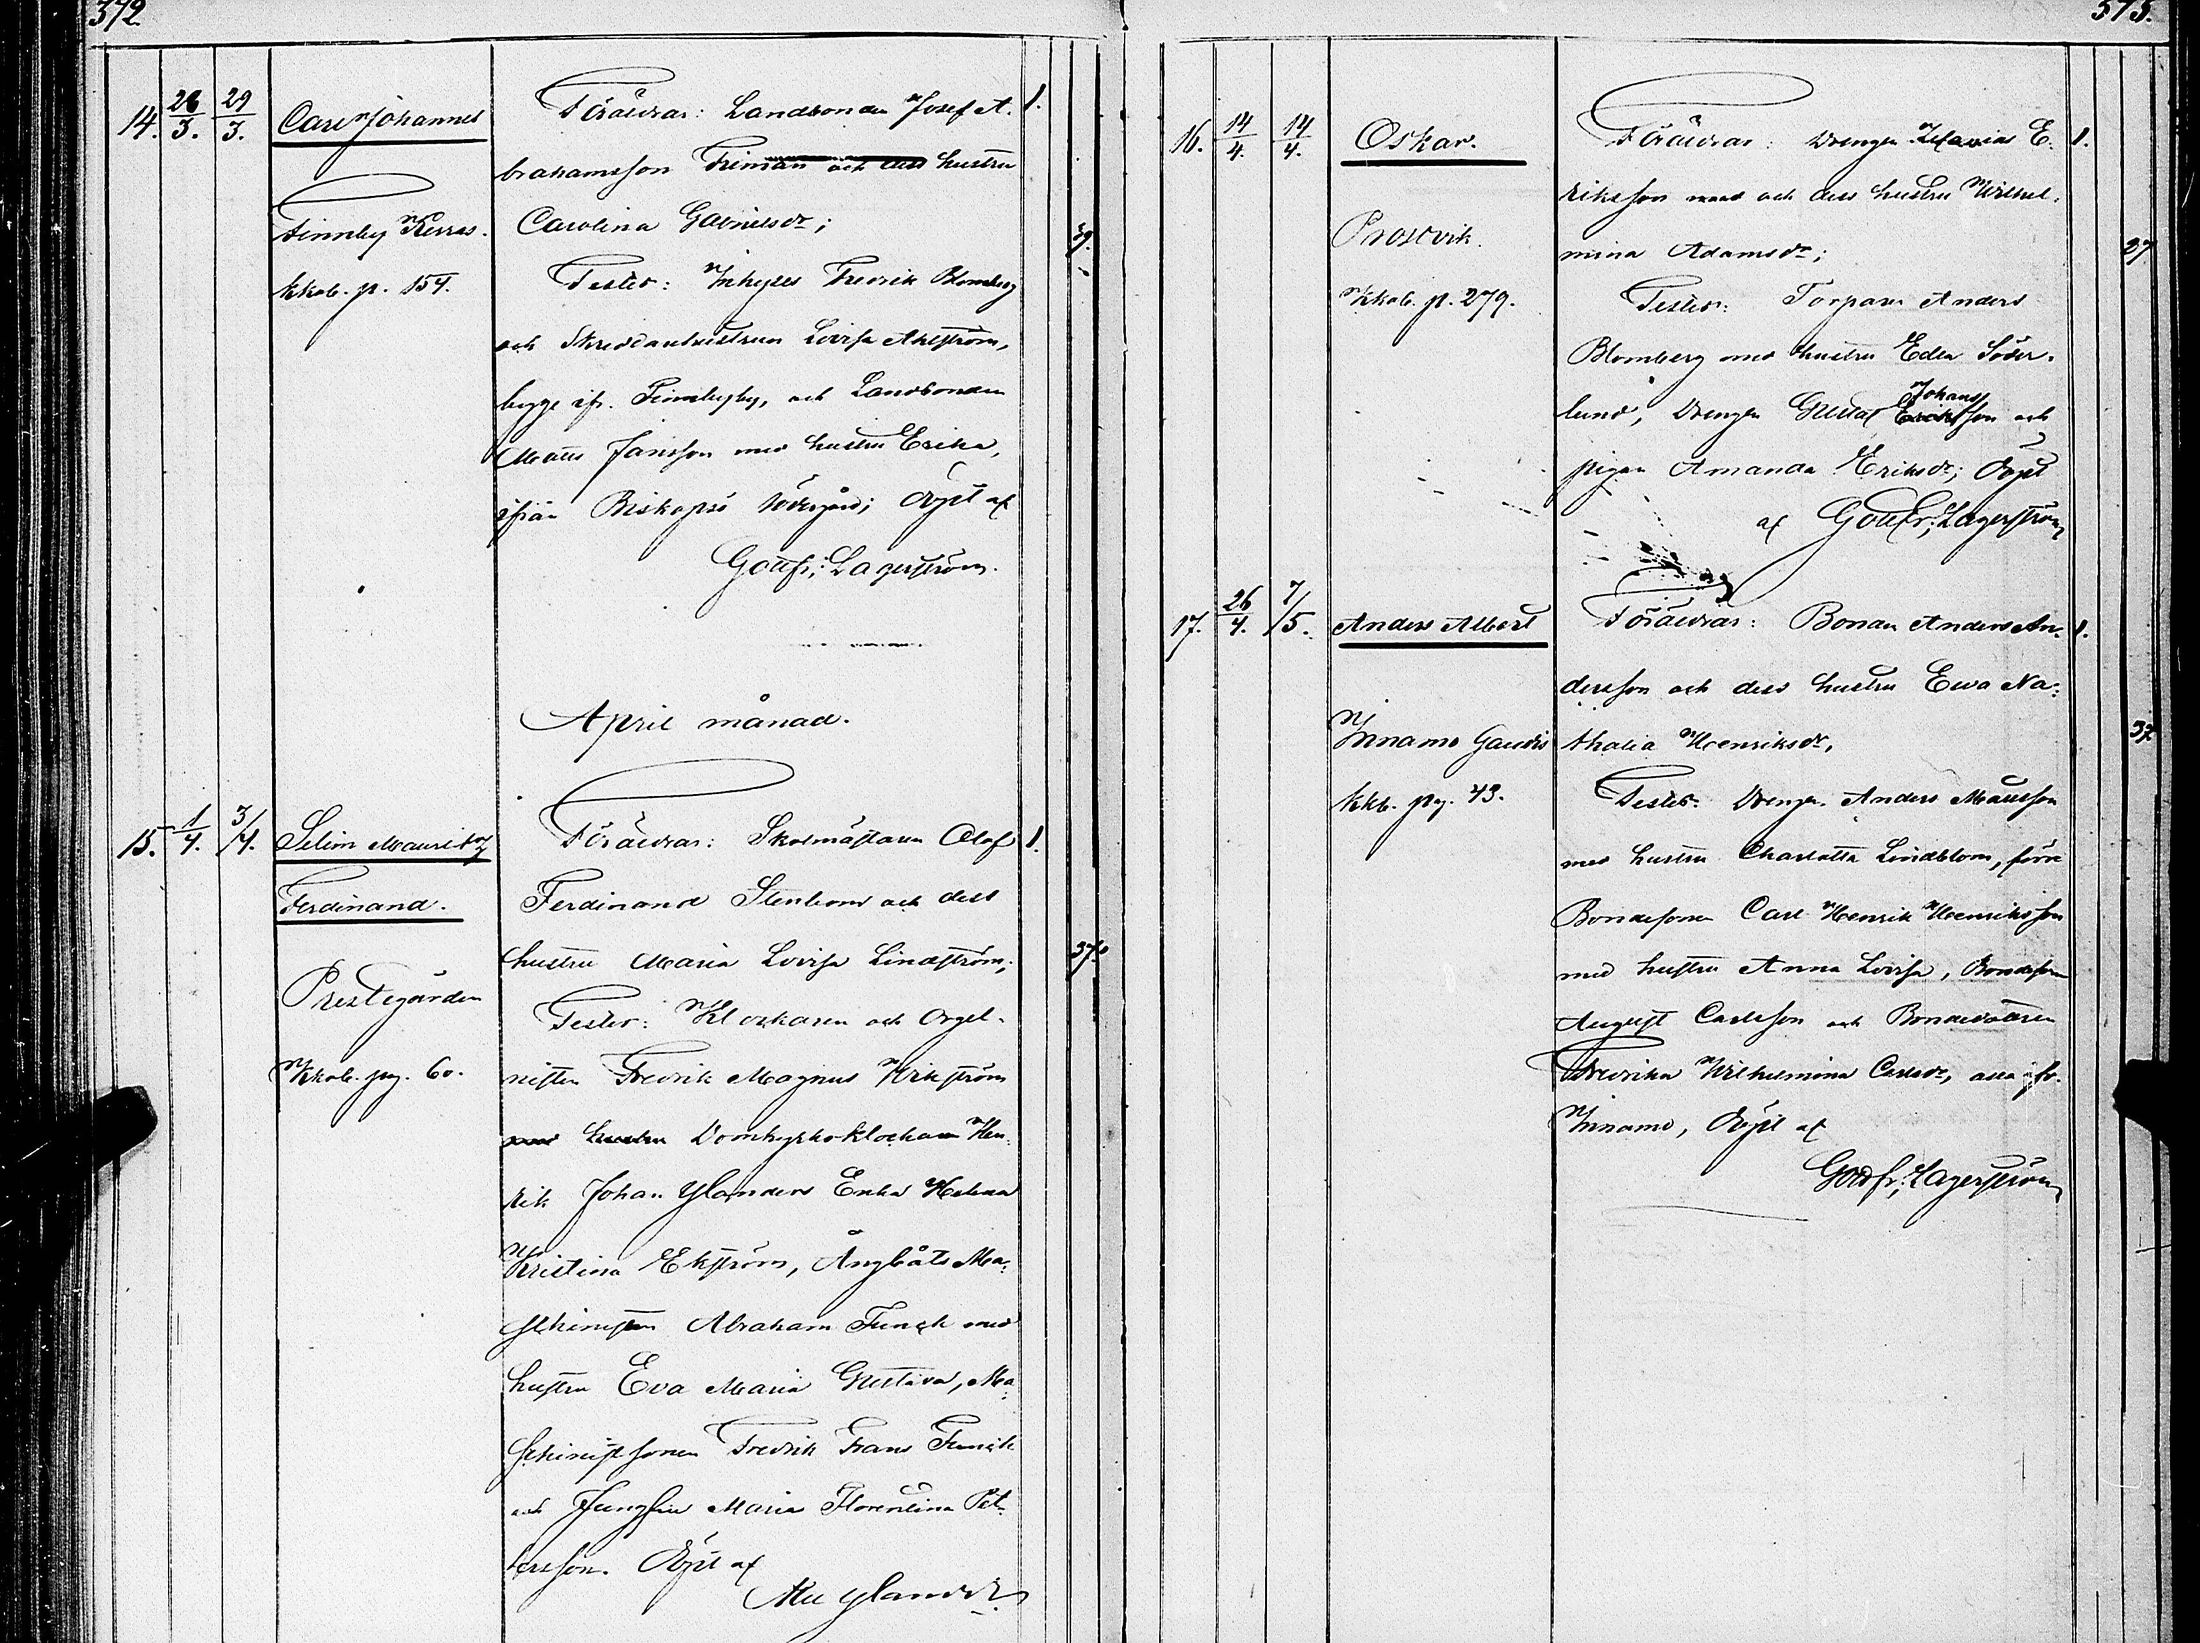 372.
14. 28/3. 29/3. Carl Johannes
Finnby Kerras.
kkob. p. 154.
Föräldrar: Landbonden Josef A. 1.
brahamsson Friman och dess hustru
Carolina Gabrielsdr; 39.
Testes: Inhyses Fredrik Blomberg
och Skreddarehustrun Lovisa Ahlström,
begge ifr. Finnbyby, och Landbonden
Matts Jansson med hustru Erika,
ifrån Biskopsö Södergård; Döpt af
Gottfr: Lagerström.
April månad.
15. 1/4. 3/4. Selim Mauritz
Ferdinand.
Prestegården
Kkob. pg. 60.
Föräldrar: Skolmästaren Olof 1.
Ferdinand Stenbom och dess
hustru Maria Lovisa Lindström; 37.
Testes: Klockaren och Orgel-
nisten Fredrik Magnus Wikström
med hustru Domkyrko-klockaren Hen-
rik Johan Ylanders Enka Helena
Kristina Ekström, Ångbåts Ma-
schinisten Abraham Funck med
hustru Eva Maria Gustava, Ma-
schinistsonen Fredrik Frans Funck
och Jungfru Maria Florentina Pet-
tersson. Döpt af
Ylander.
373.
16. 14/4. 14/4. Oskar.
Prostvik.
Kkob. p. 279.
Föräldrar: Drengen E. 1.
riksson med och dess hustru Wilhel-
mina Adamsdr; 27
Testes: Torparen Anders
Blomberg med hustru Edla Söder-
lund, Drengen Gustaf Eriksson och
Johans
pigan Amanda Eriksdr; Döpt
af Gottfr: Lagerström
17. 26/4. 7/5. Anders Albert
Innamo Gaudis
Kkb. pg. 43.
Föräldrar: Bonden Anders An- 1.
dersson och dess hustru Ewa Na-
thalia Henriksdr, 37
Testes: Drengen Anders Mattsson
med hustru Charlotta Lindblom, förre
Bondesonen Carl Henrik Henriksson
med hustru Anna Lovisa, Bondeson
August Carlsson och Bondedottren
Fredrika Wilhelmina Carlsdr, alla ifr.
Innamo, Döpt af
Gottfr: Lagerström